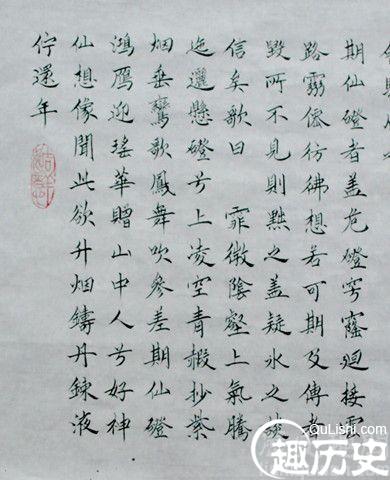 期仙磴者盖危磴穹窿廻接雲
路靈僊彷彿想若可期及傳者
毀所不見則黜之盖疑水之談
信矣歌曰 霏微陰壑上氣騰
迤邐懸磴兮上凌空青霞抄紫
烟垂鸞歌鳳舞吹參差期仙磴
鴻鴈迎瑤華贈山中人兮好神
仙想像聞此欲升烟鑄丹鍊液
佇還年
QuLiShi.com
趣历史